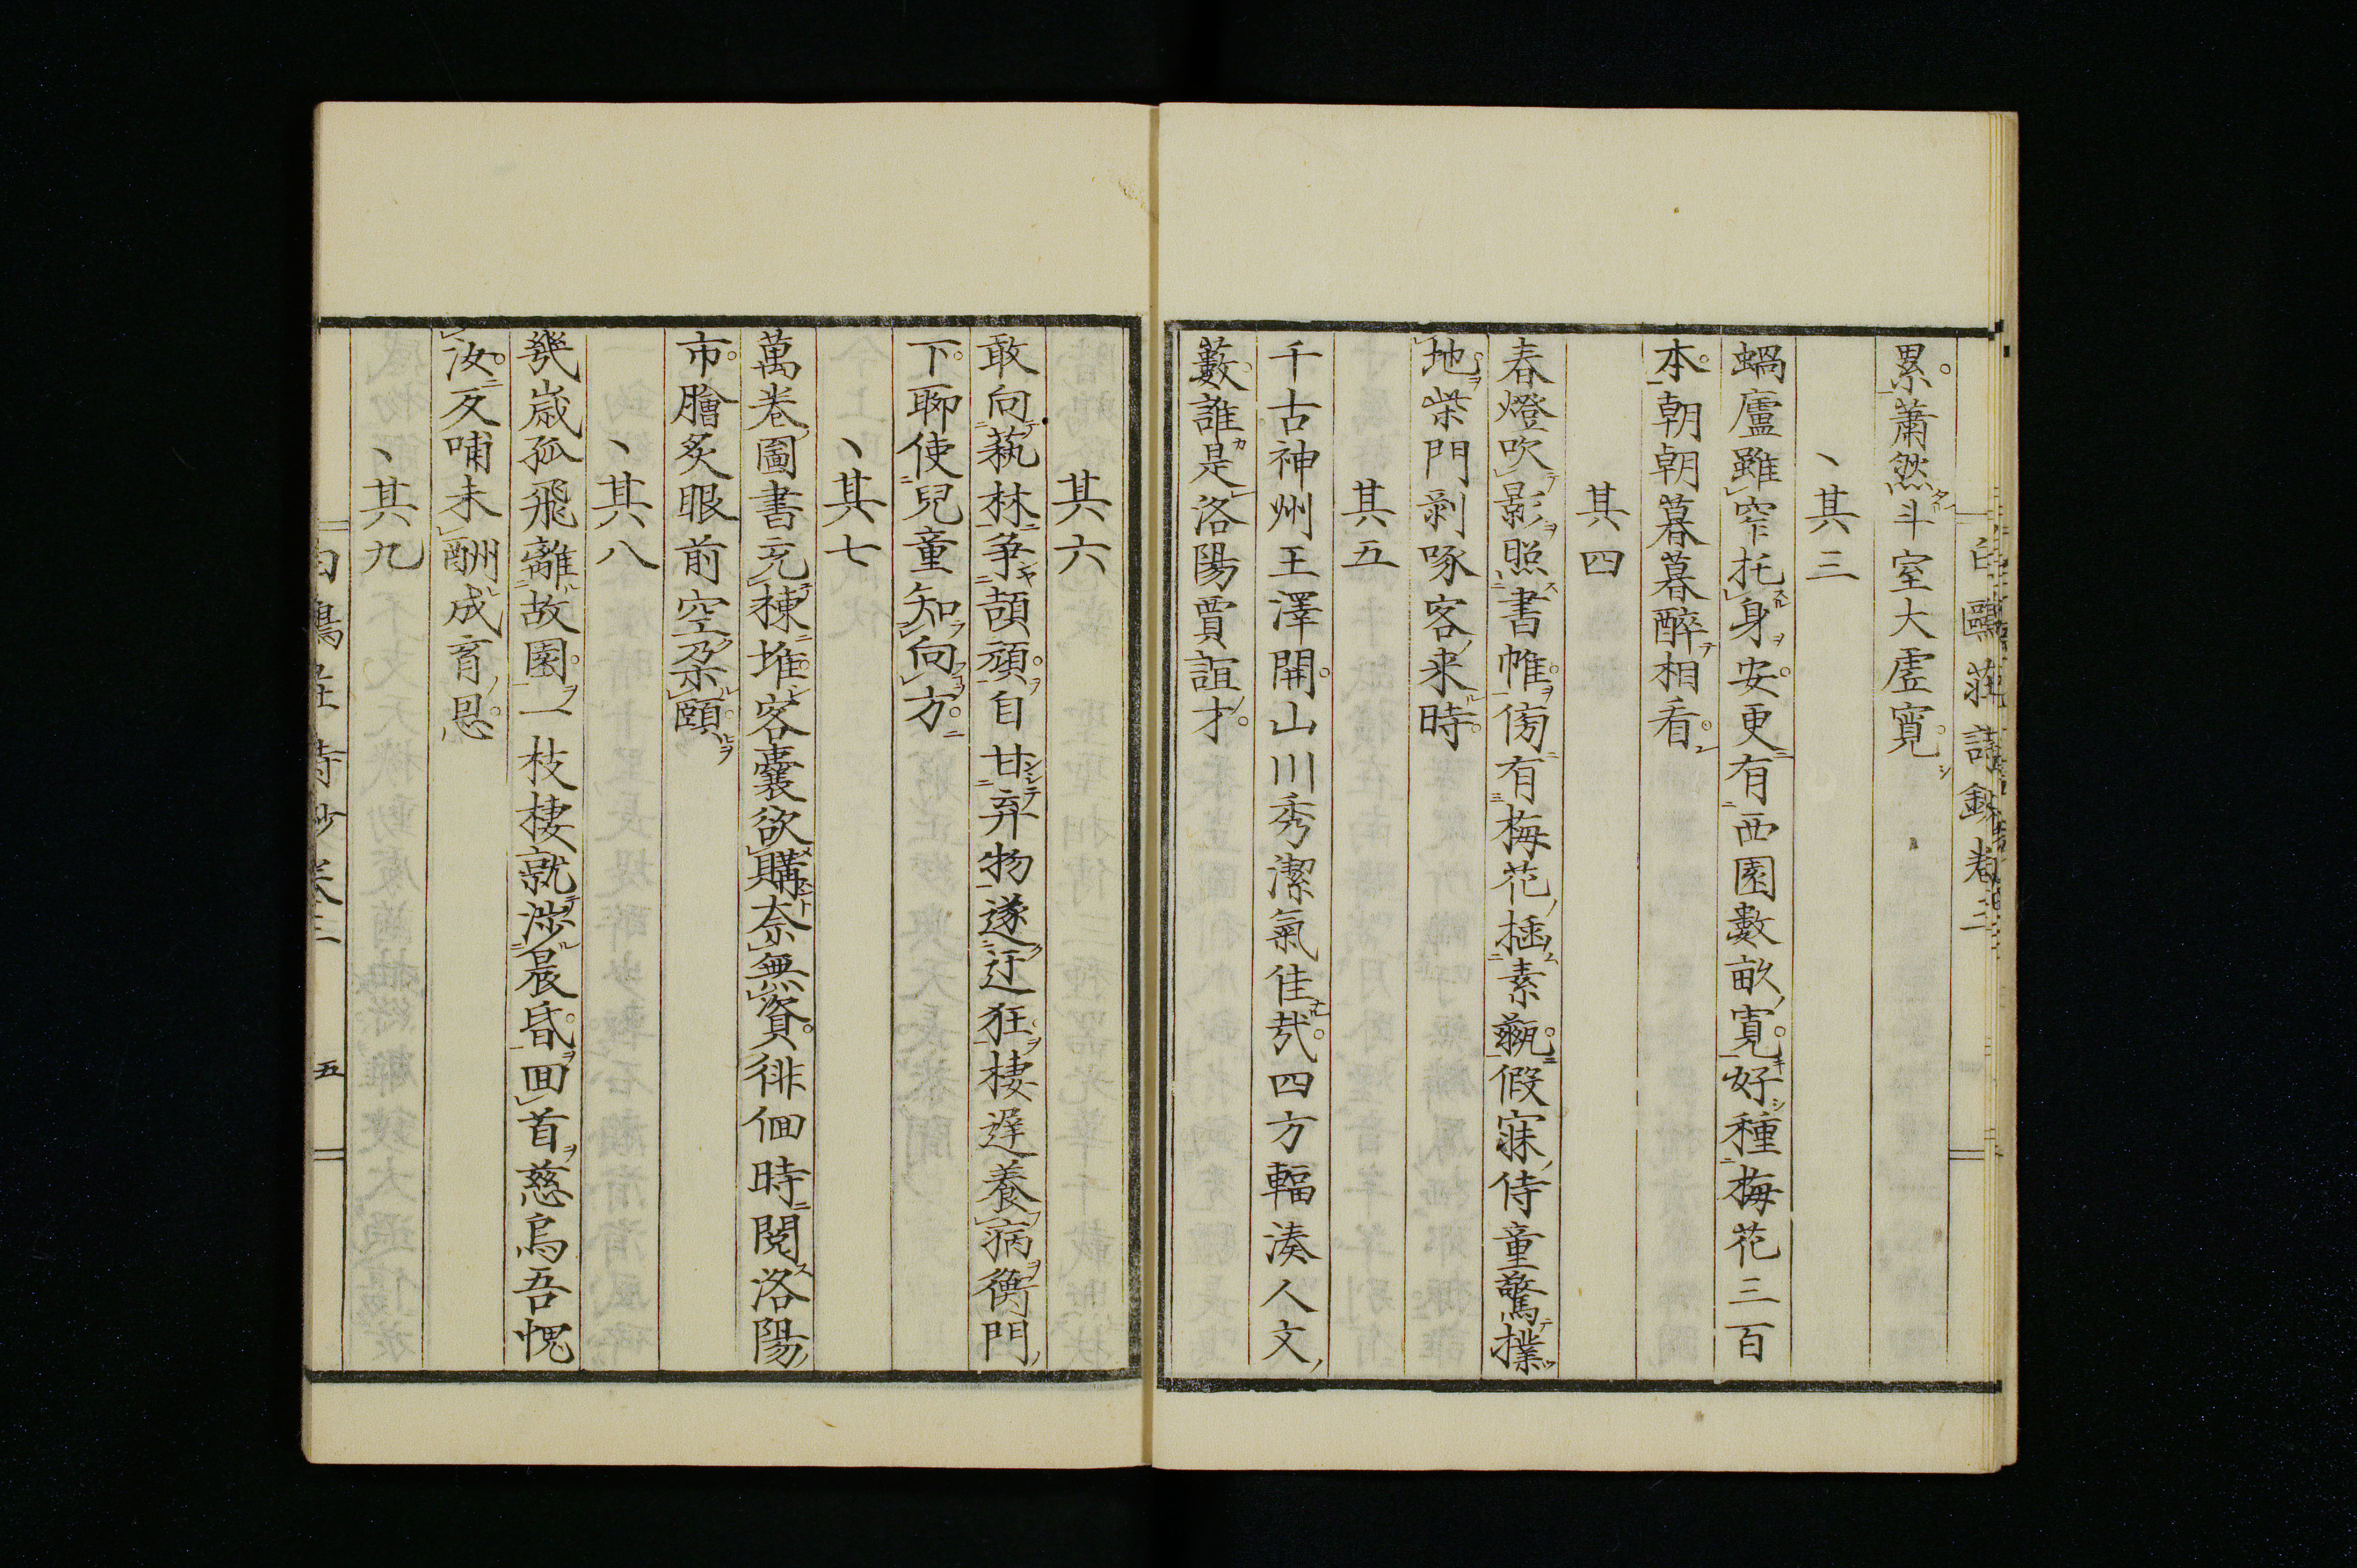 白鷗莊詩鈔卷三
累蕭然斗室大虛寬
其三
蝸廬雖窄托身安更有西園數畝寬好種梅花三百
本朝朝暮暮醉相看
其四
春燈吹影照書帷傍有梅花插素瓻假寐侍童驚撲
地柴門剥啄客来時
其五
千古神州王澤開山川秀潔氣佳哉四方輻湊人文
藪誰是洛陽賈誼才
其六
敢向蓺林争頡頏自甘弃物遂迂狂棲遅養病衡門
下聊使兒童知向方
其七
萬卷圖書充棟堆客囊欲購奈無資徘徊時閲洛陽
市膾炙眼前空朶頤
其八
幾歳孤飛離故園一枝棲就渺晨昏囬首慈烏吾愧
汝反哺未酬成育恩
其九
白鷗莊詩鈔卷三 五